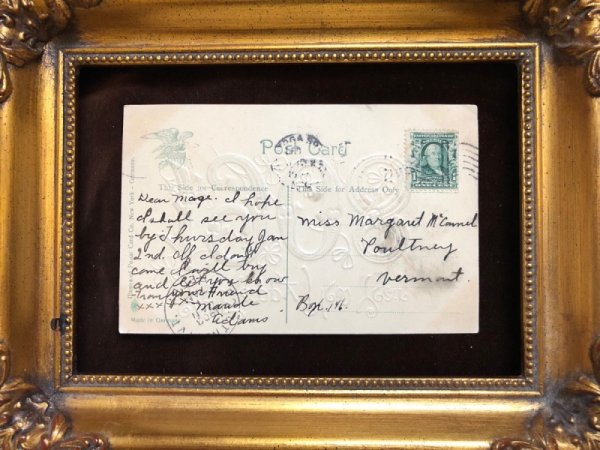 Post Card
This Side for Correspondence
This Side for Address Only
Dear Mage. I hope
I shall see you
by Thursday Jan
2nd. If I don't
come I will try
and let you know
From your friend
xxx Maude
Adams.
Miss Margaret McCannel
Poultney
Vermont.
Box 14.
Made in Germany